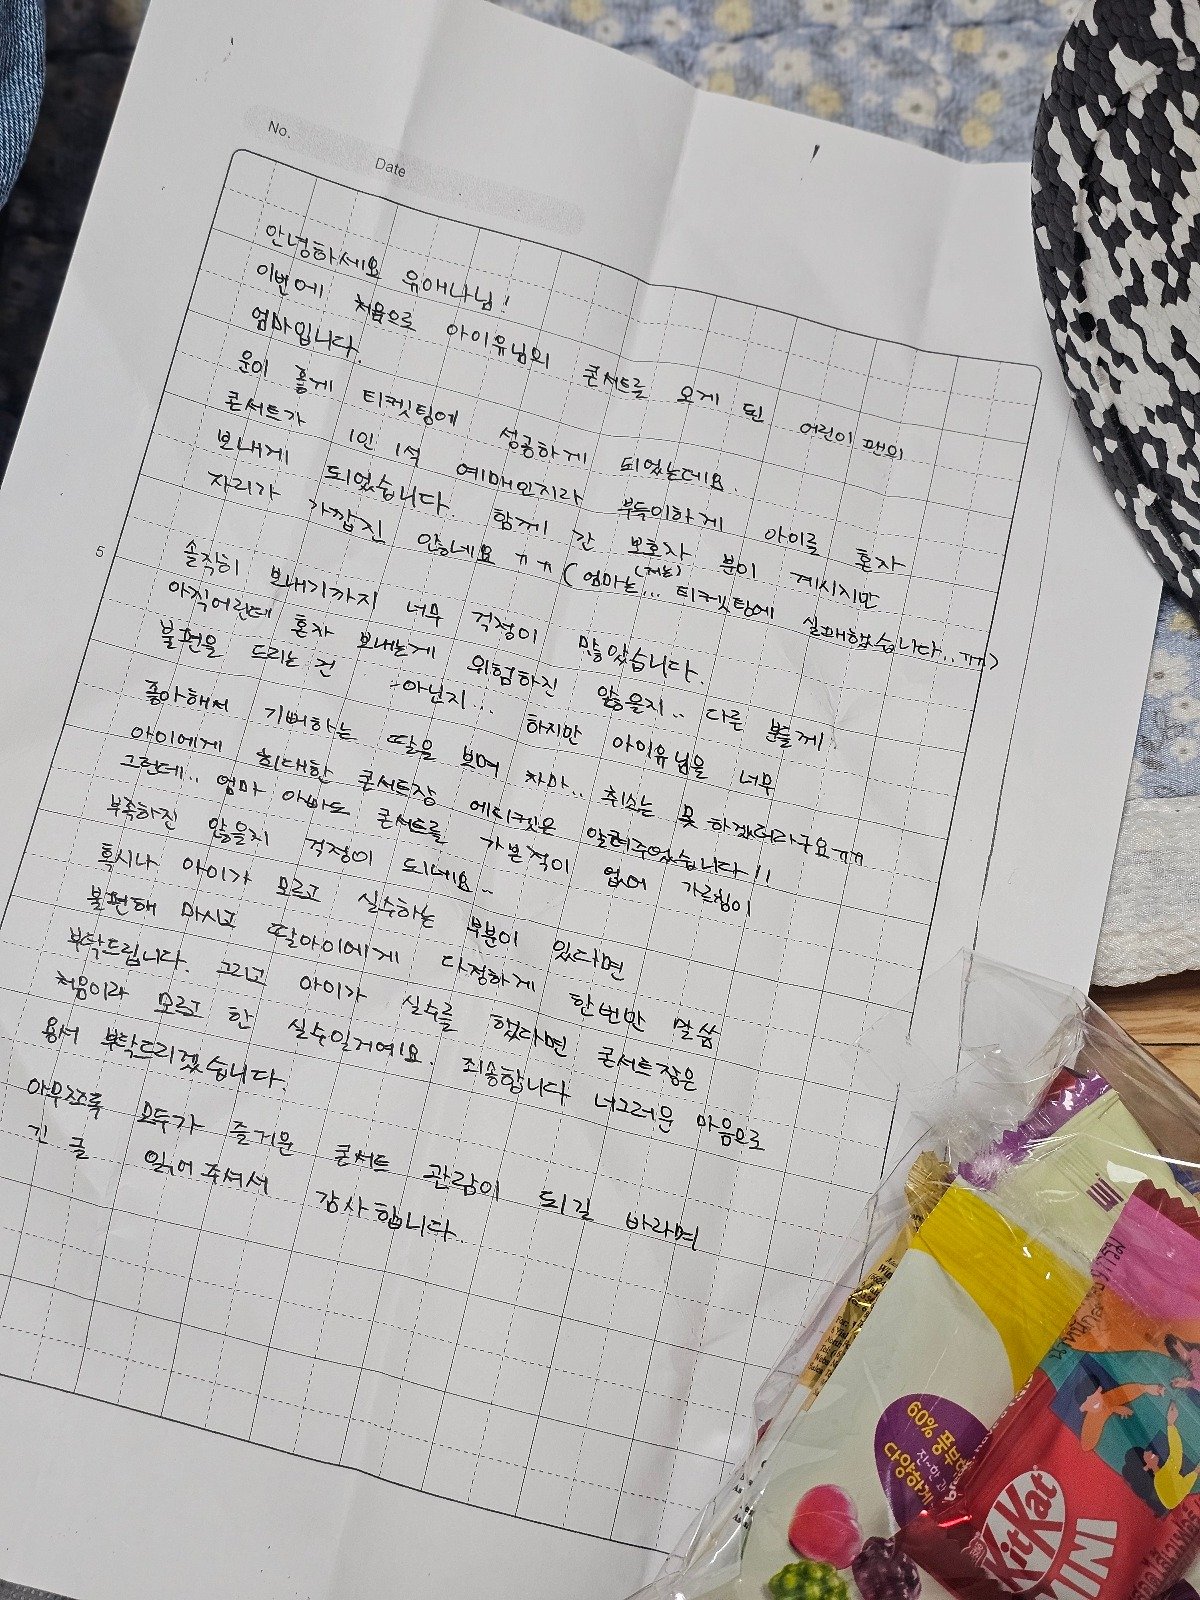 No.
Date
안녕하세요 유애나님!
이번에 처음으로 아이유님의 콘서트를 오게 된 어린이 팬의
엄마입니다.
운이 좋게 티켓팅에 성공하게 되었는데요.
콘서트가 1인 1석 예매인지라 부득이하게 아이를 혼자
보내게 되었습니다. 함께 간 보호자 분이 계시지만
자리가 가깝진 않네요ㅠㅠ (엄마는(저는)... 티켓팅에 실패했습니다..ㅠㅠ)
5
솔직히 보내기까지 너무 걱정이 많았습니다.
아직어린데 혼자 보내는게 위험하진 않을지.. 다른 분들께
불편을 드리는 건 아닌지... 하지만 아이유님을 너무
좋아해서 기뻐하는 딸을 보며 차마.. 취소는 못 하겠더라구요ㅠㅠ
아이에게 최대한 콘서트장 에티켓은 알려주었습니다!!
그런데.. 엄마 아빠도 콘서트를 가본적이 없어 가르침이
부족하진 않을지 걱정이 되네요..
혹시나 아이가 모르고 실수하는 부분이 있다면
불편해 마시고 딸아이에게 다정하게 한번만 말씀
부탁드립니다. 그리고 아이가 실수를 했다면 콘서트장은
처음이라 모르고 한 실수일거예요. 죄송합니다 너그러운 마음으로
용서 부탁드리겠습니다.
아무쪼록 모두가 즐거운 콘서트 관람이 되길 바라며
긴 글 읽어주셔서 감사합니다.
60% 풍부한
다양하게
KitKat
MINI